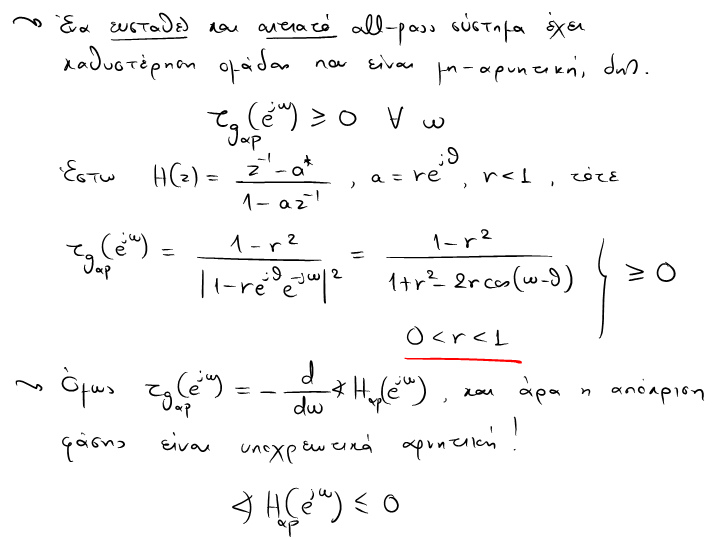 ~ Ένα ευσταθές και αιτιατό all-pass σύστημα έχει
καθυστέρηση ομάδας που είναι μη-αρνητική, δηλ.
τ_{g_{ap}}(e^{jω}) ≥ 0 ∀ ω
Έστω H(z) = \frac{z^{-1} - a^*}{1 - az^{-1}}, a = re^{jϑ}, r < 1, τότε
τ_{g_{ap}}(e^{jω}) = \frac{1 - r^2}{|1 - re^{jϑ}e^{-jω}|^2} = \frac{1 - r^2}{1 + r^2 - 2r cos(ω-ϑ)} } ≥ 0
0 < r < 1
~ Όμως τ_{g_{ap}}(e^{jω}) = -\frac{d}{dω} ∢ H_{ap}(e^{jω}), και άρα η απόκριση
φάσης είναι υποχρεωτικά αρνητική!
∢ H_{ap}(e^{jω}) ≤ 0